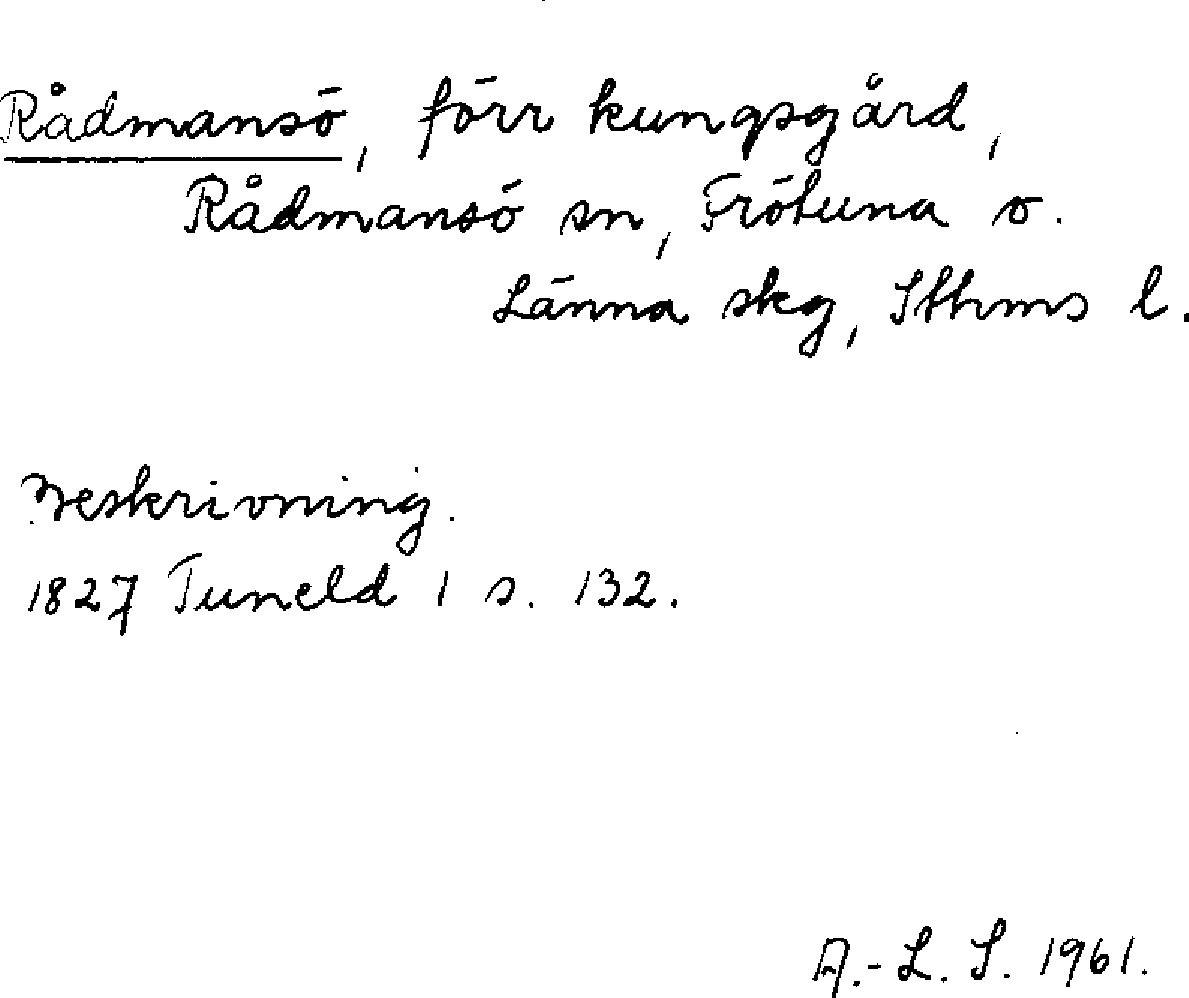 Rådmansö, förr kungsgård,
Rådmansö sn, Frötuna o.
Länna skg, Sthms l.
Beskrivning.
1827 Tuneld 1 s. 132.
A.-L. S. 1961.